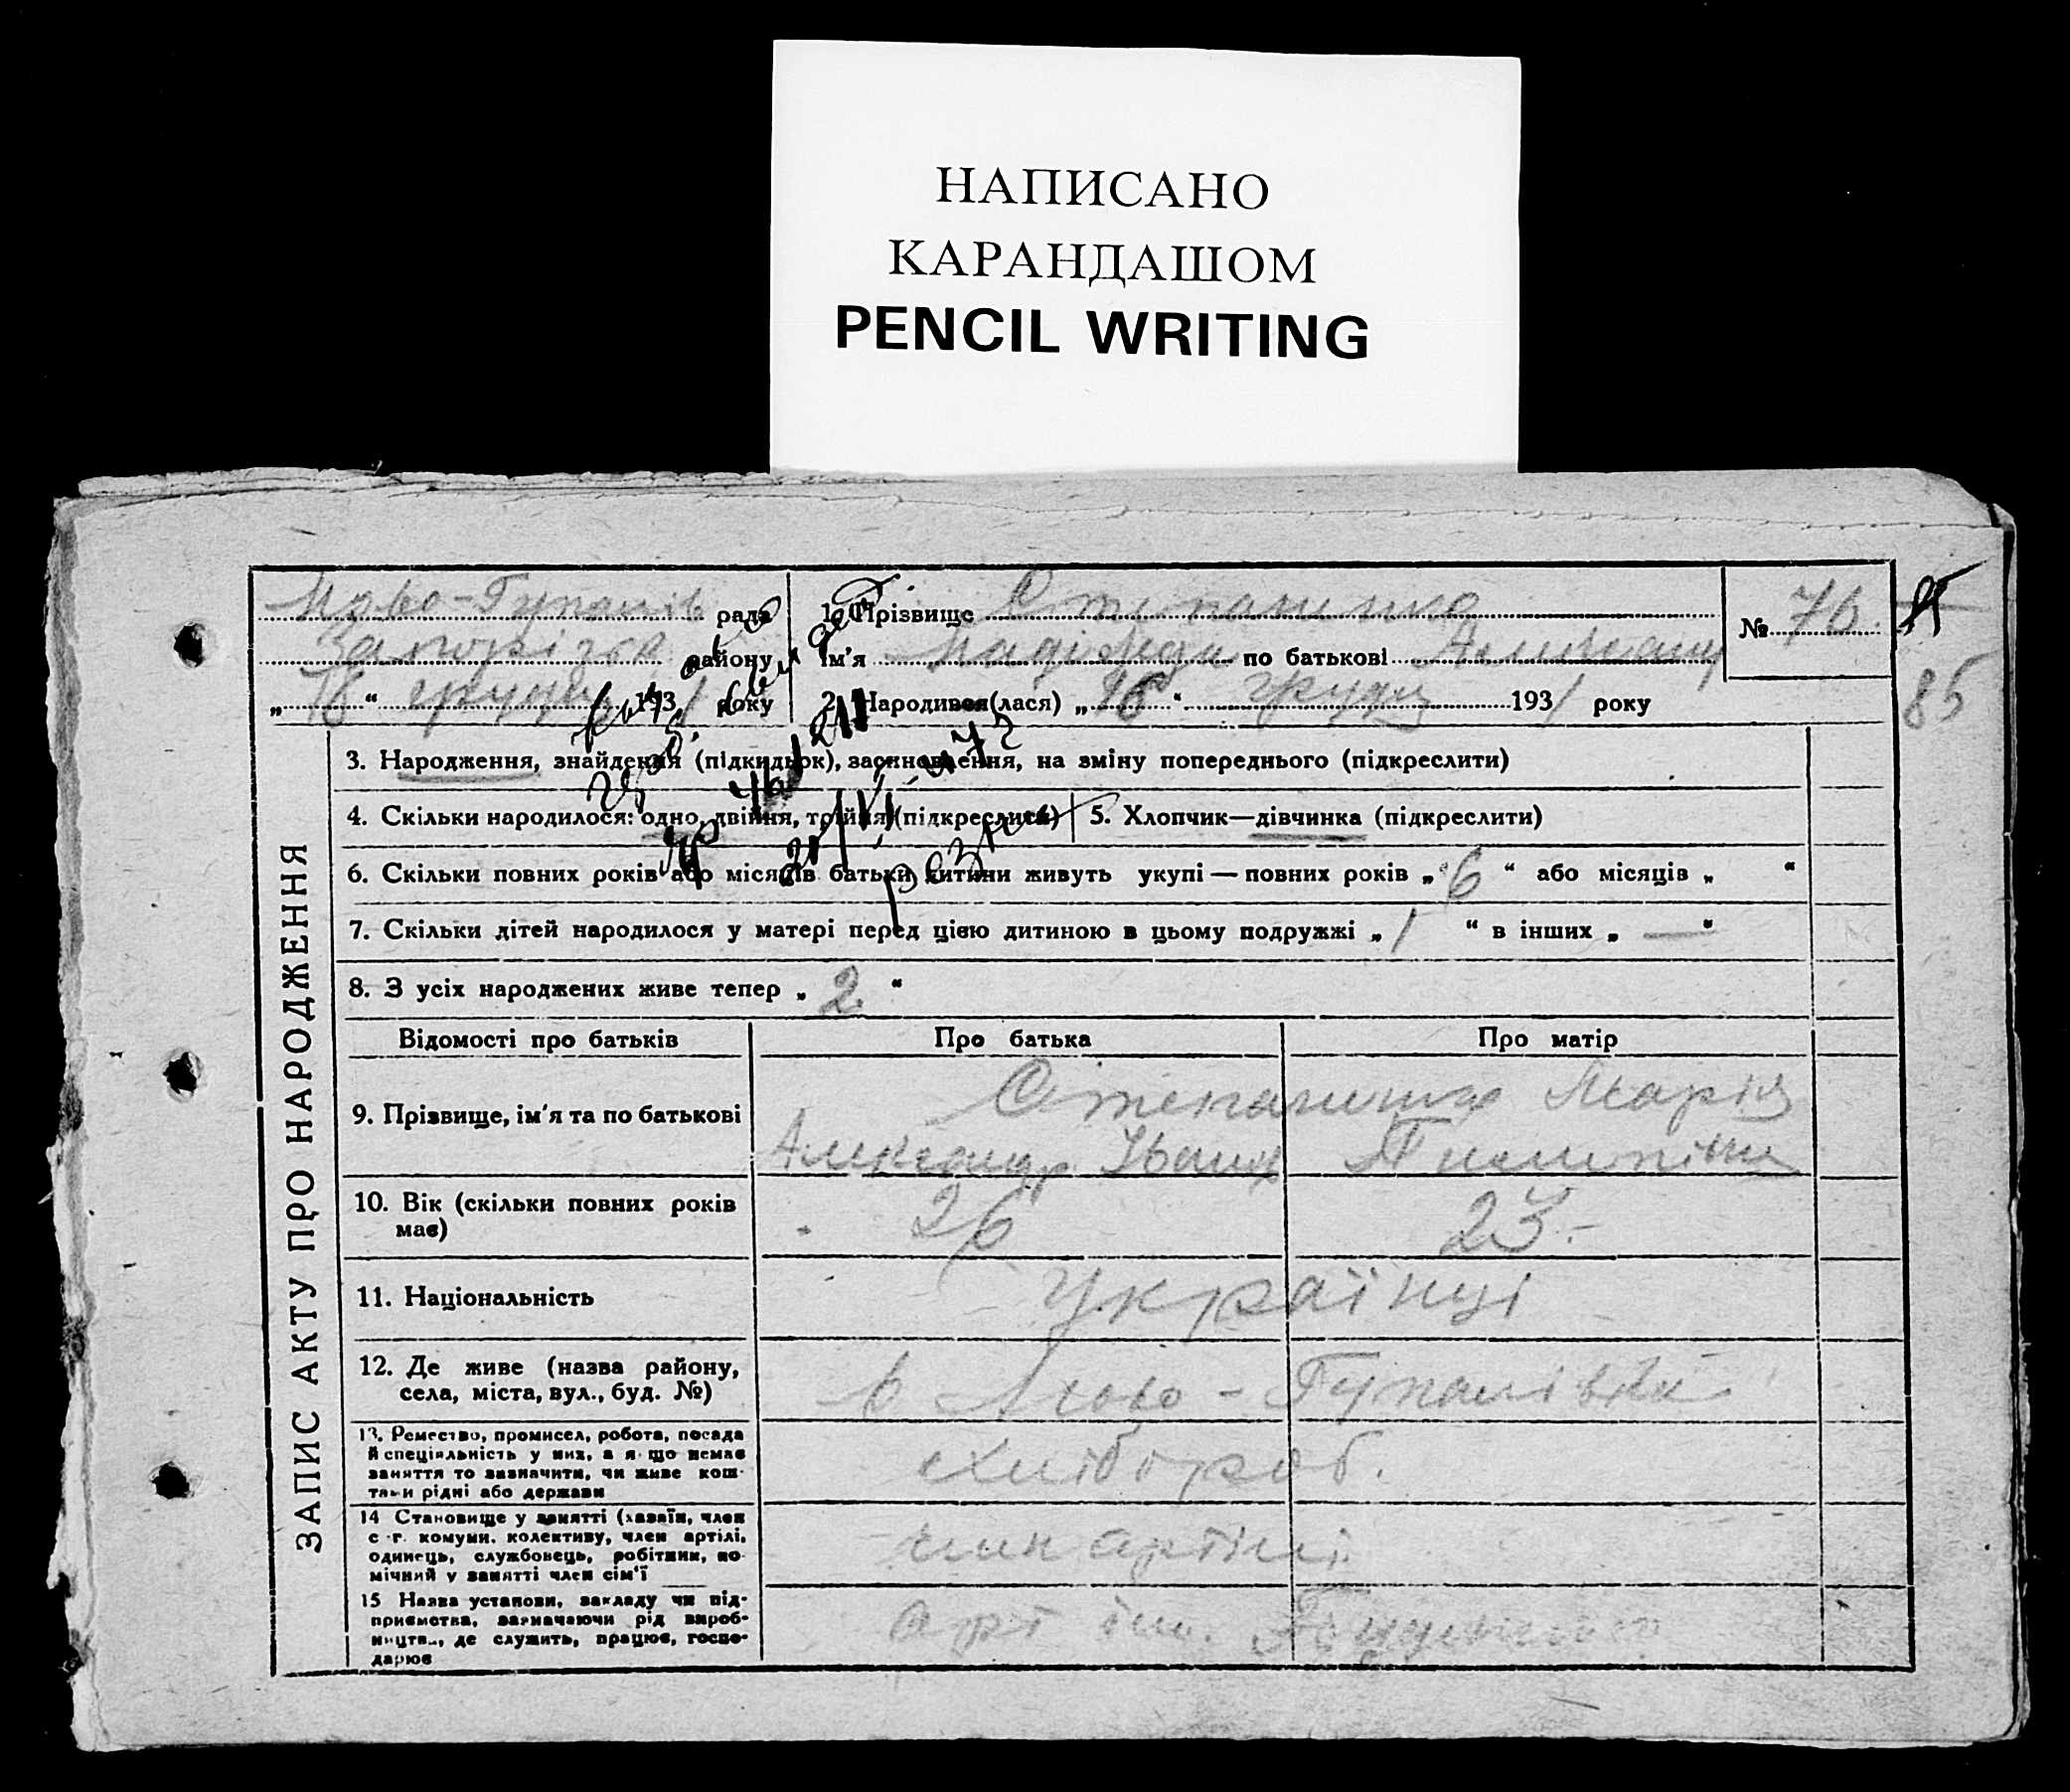 НАПИСАНО
КАРАНДАШОМ
PENCIL WRITING
Ново-Гупалів рада
Запорізьк району
„ 18 “ грудня 1931 року
1. Прізвище Степаненко
№ 76
Ім'я Надежда по батькові Александр
2. Народився(лася) „ 16 “ грудня 1931 року
85
3. Народження, знайдення (підкидьок), заочновлення, на зміну попереднього (підкреслити)
4. Скільки народилося: одно, двійня, трійня (підкреслити) 5. Хлопчик—дівчинка (підкреслити)
6. Скільки повних років або місяців батьки дитини живуть укупі — повних років „ 6 “ або місяців „ “
7. Скільки дітей народилося у матері перед цією дитиною в цьому подружжі „ 1 “ в інших „ — “
8. З усіх народжених живе тепер „ 2 “
ЗАПИС АКТУ ПРО НАРОДЖЕННЯ
Відомості про батьків Про батька Про матір
9. Прізвище, ім'я та по батькові
Степаненко Марія
Александр Іван
10. Вік (скільки повних років
має)
26 23.-
11. Національність Українці
12. Де живе (назва району,
села, міста, вул., буд. №)
в Ново-Гупалівка
13. Ремество, промисел, робота, посада
й спеціяльність у них, а я що немає
заняття то зазначити, чи живе кош-
тами рідні або держави
хлібороб.
14 Становище у занятті (хазаїн, член
с.-г. комуни, колективу, член артілі,
одинець, службовець, робітник, по-
мічний у занятті член сім'ї
член артілі
15 Назва установи, закладу чи під-
приємства, зазначаючи рід вироб-
ництва, де служить, працює, госпо-
дарює
арт ім.